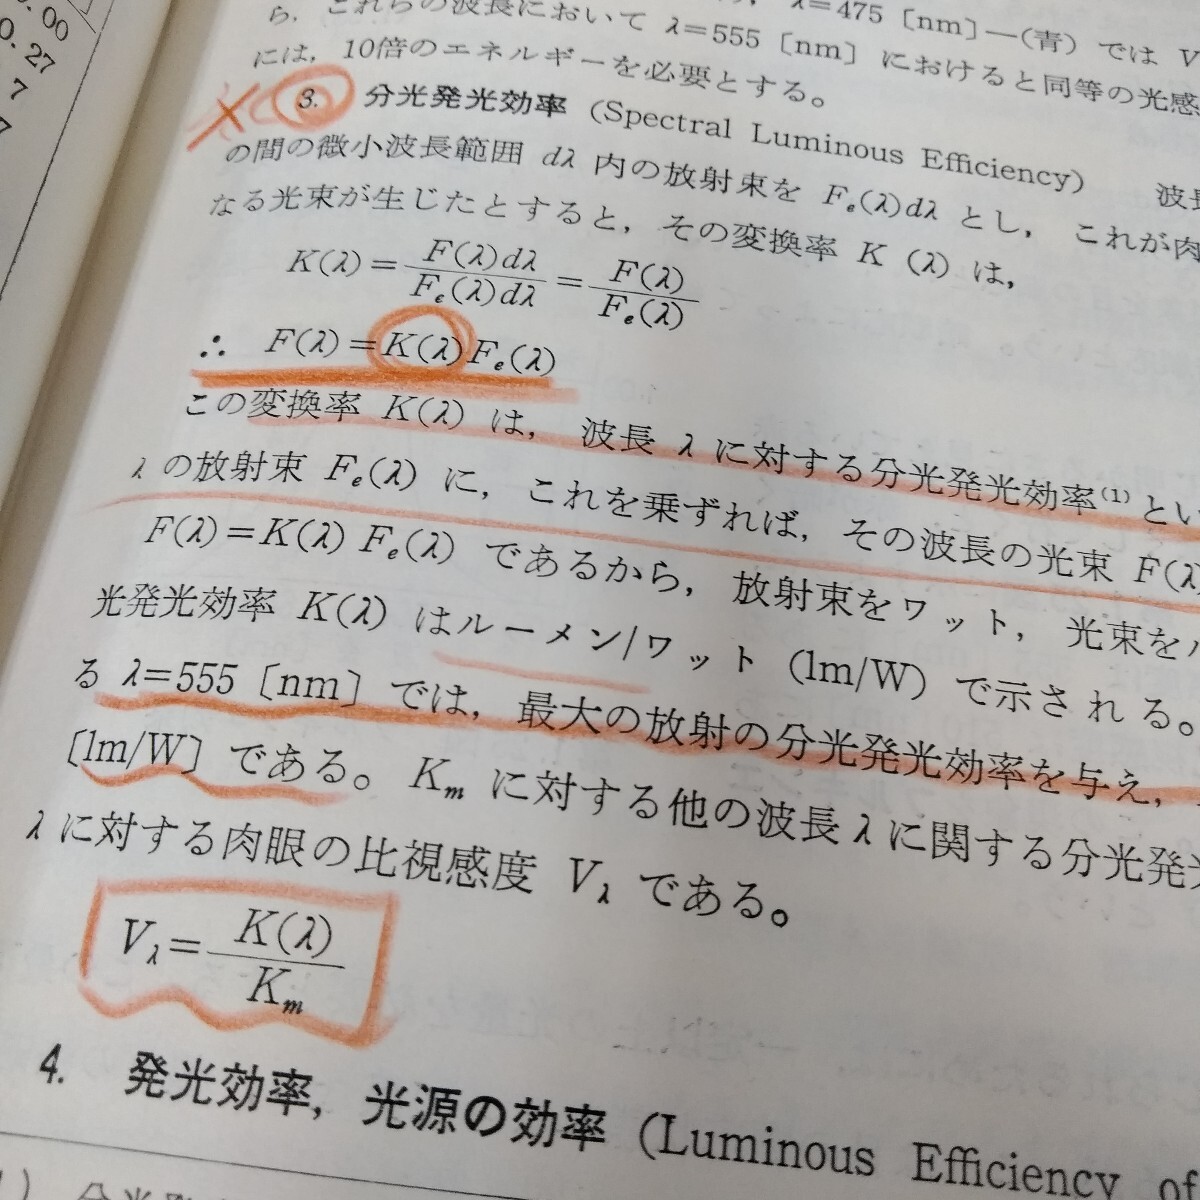 .00
0.27
7
7
λ=475〔nm〕—(青) では V
ら. これらの波長において λ=555〔nm〕におけると同等の光感
には, 10倍のエネルギーを必要とする。
3. 分光発光効率 (Spectral Luminous Efficiency) 波長
の間の微小波長範囲 dλ 内の放射束を Fe(λ)dλ とし, これが肉
なる光束が生じたとすると, その変換率 K (λ) は,
K(λ) = F(λ)dλ / Fe(λ)dλ = F(λ) / Fe(λ)
∴ F(λ) = K(λ) Fe(λ)
この変換率 K(λ) は, 波長 λ に対する分光発光効率(1)とい
λ の放射束 Fe(λ) に, これを乗ずれば, その波長の光束 F(λ)
F(λ)=K(λ) Fe(λ) であるから, 放射束をワット, 光束を
光発光効率 K(λ) はルーメン/ワット (lm/W) で示される。
る λ=555〔nm〕では, 最大の放射の分光発光効率を与え,
〔lm/W〕である。Km に対する他の波長 λ に関する分光発光
λ に対する肉眼の比視感度 Vλ である。
Vλ = K(λ) / Km
4. 発光効率, 光源の効率 (Luminous Efficiency of